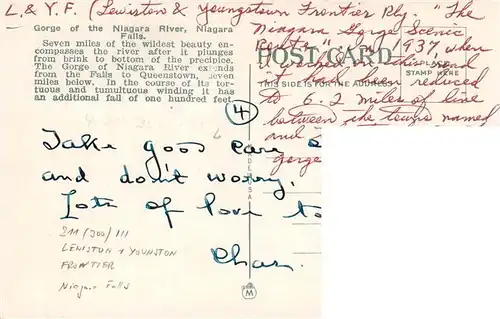 L. & Y. F. (Lewiston & Youngstown Frontier Rly. "The
Niagara Gorge Scenic
Route" 1937, when
it had been reduced
to 6.2 miles of line
between the towns named
and
gorge
Gorge of the Niagara River, Niagara
Falls.
Seven miles of the wildest beauty en-
compasses the river after it plunges
from brink to bottom of the precipice.
The Gorge of Niagara River extends
from the Falls to Queenstown, seven
miles below. In the course of its tor-
tuous and tumultuous winding it has
an additional fall of one hundred feet.
POST CARD
THIS SIDE IS FOR THE ADDRESS
PLACE
STAMP HERE
4
Take good care
and don't worry.
Lots of love to
Chas.
211 (300) III
LEWISTON & YOUNSTON
FRONTIER
Niagara Falls
M